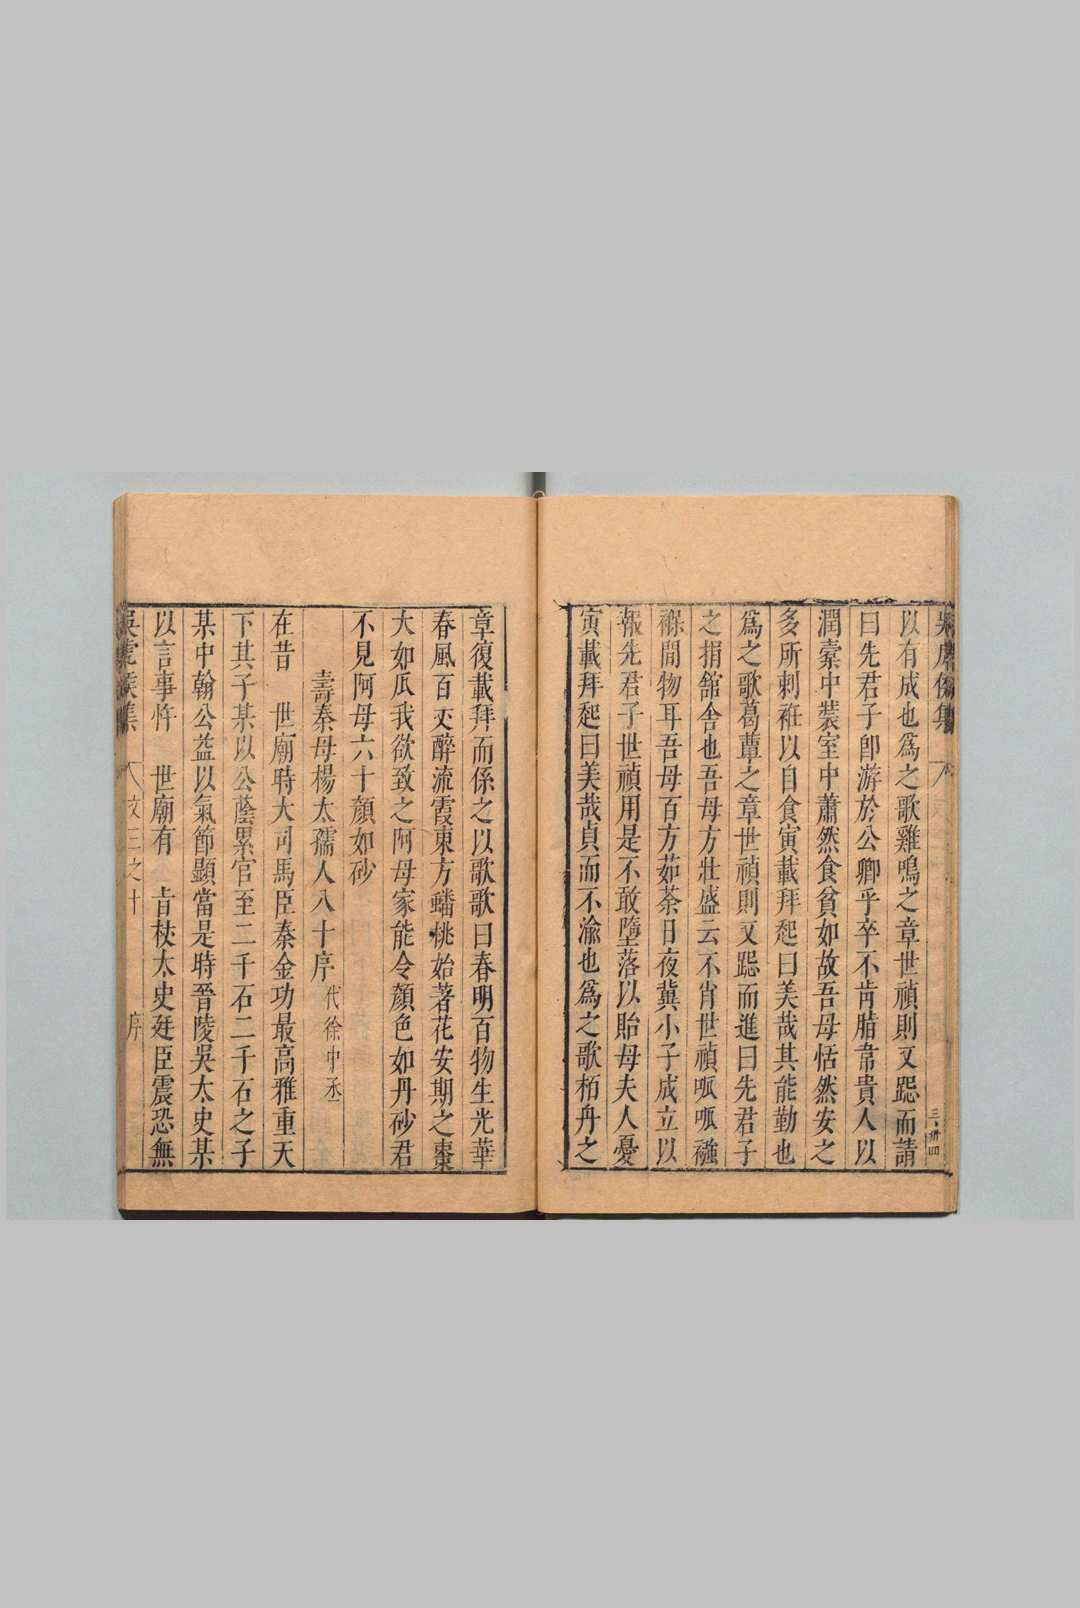 以有成也爲之歌雞鳴之章世禎則又跽而請
曰先君子卽游於公卿乎卒不肯腊韋貴人以
潤橐中裝室中蕭然食貧如故吾母恬然安之
多所刺袵以自食寅載拜起曰美哉其能勤也
爲之歌葛蕈之章世禎則又跽而進曰先君子
之捐舘舍也吾母方壯盛云不肖世禎呱呱襁
褓間物耳吾母百方茹荼日夜冀小子成立以
報先君子世禎用是不敢墮落以貽母夫人憂
寅載拜起曰美哉貞而不渝也爲之歌栢舟之
章復載拜而係之以歌歌曰春明百物生光華
春風百丈醉流霞東方蟠桃始著花安期之棗
大如瓜我欲致之阿母家能令顏色如丹砂君
不見阿母六十顏如砂
壽秦母楊太孺人八十序代徐中丞
在昔 世廟時大司馬臣秦金功最高雅重天
下其子某以公蔭累官至二千石二千石之子
某中翰公益以氣節顯當是時晉陵吳太史某
以言事忤 世廟有 旨杖太史廷臣震恐無
吳虎侯集 文三之十 序